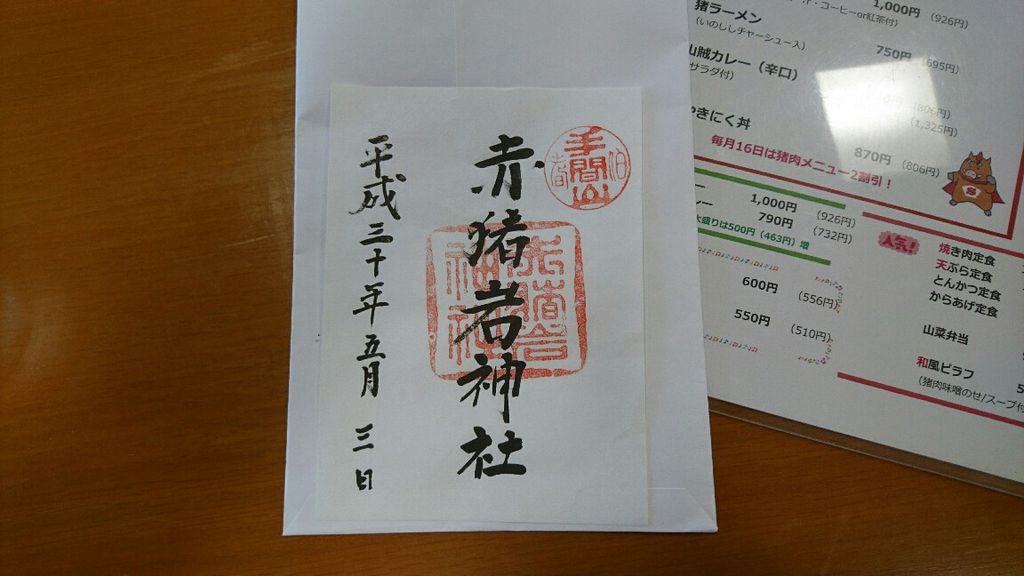 赤猪岩神社
平成三十年五月 三日
手間山
伯耆
1,000円 (926円)
ー・コーヒーor紅茶付)
猪ラーメン
(いのししチャーシュー入)
750円 (695円)
山賊カレー(辛口)
サラダ付)
(1,325円)
やきにく丼
870円 (806円)
毎月16日は猪肉メニュー2割引!
1,000円 (926円)
790円 (732円)
大盛りは500円 (463円) 増
600円 (556円)
550円 (510円)
人気!
焼き肉定食
天ぷら定食
とんかつ定食
からあげ定食
山菜弁当
和風ピラフ
(猪肉味噌のせ/スープ付